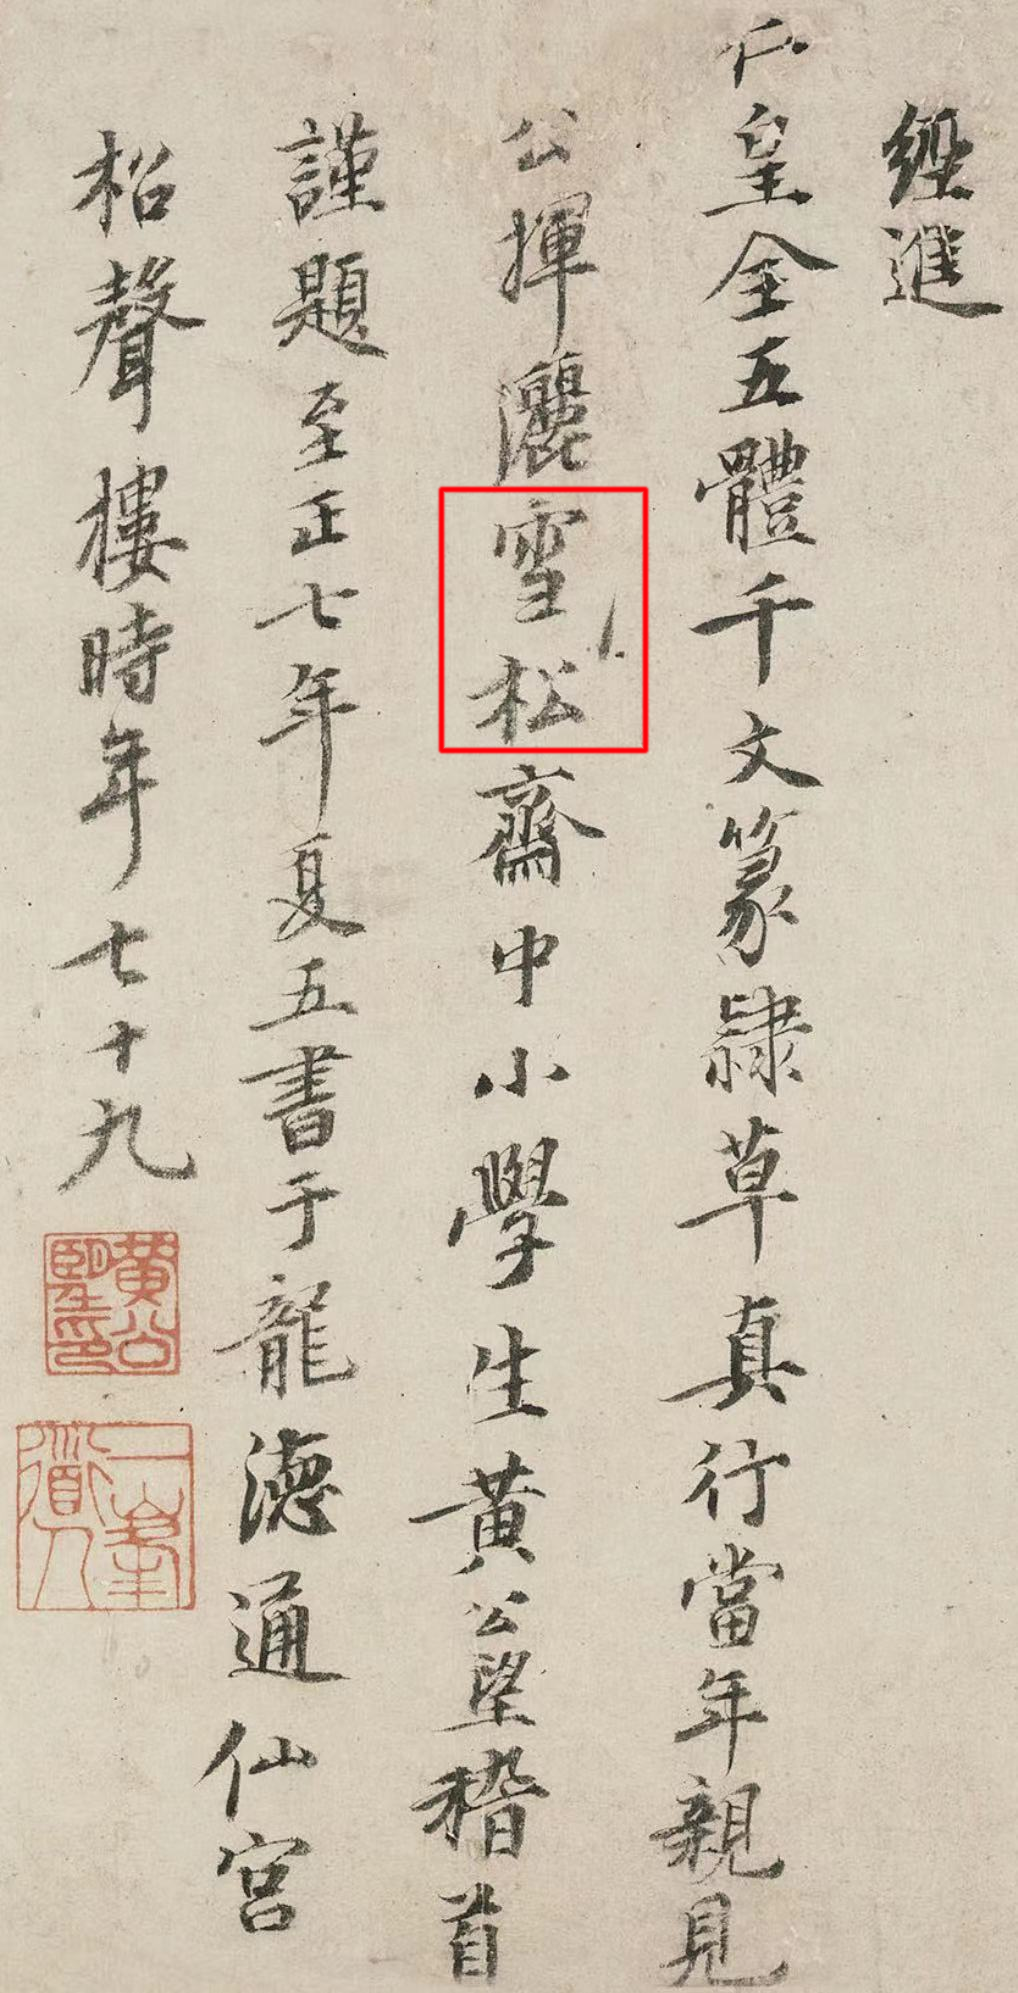 經進
仁皇全五體千文篆隸草真行當年親見
公揮灑雪松齋中小學生黃公望稽首
謹題至正七年夏五書于龍德通仙宮
松聲樓時年七十九
黃公
望印
一峯
道人